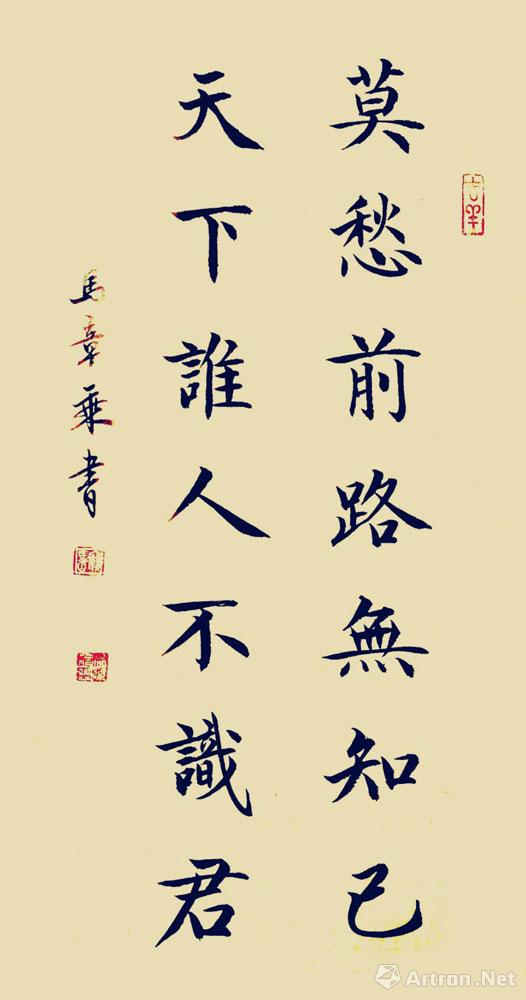 莫愁前路無知己
天下誰人不識君
馬章乘書
Artron.Net